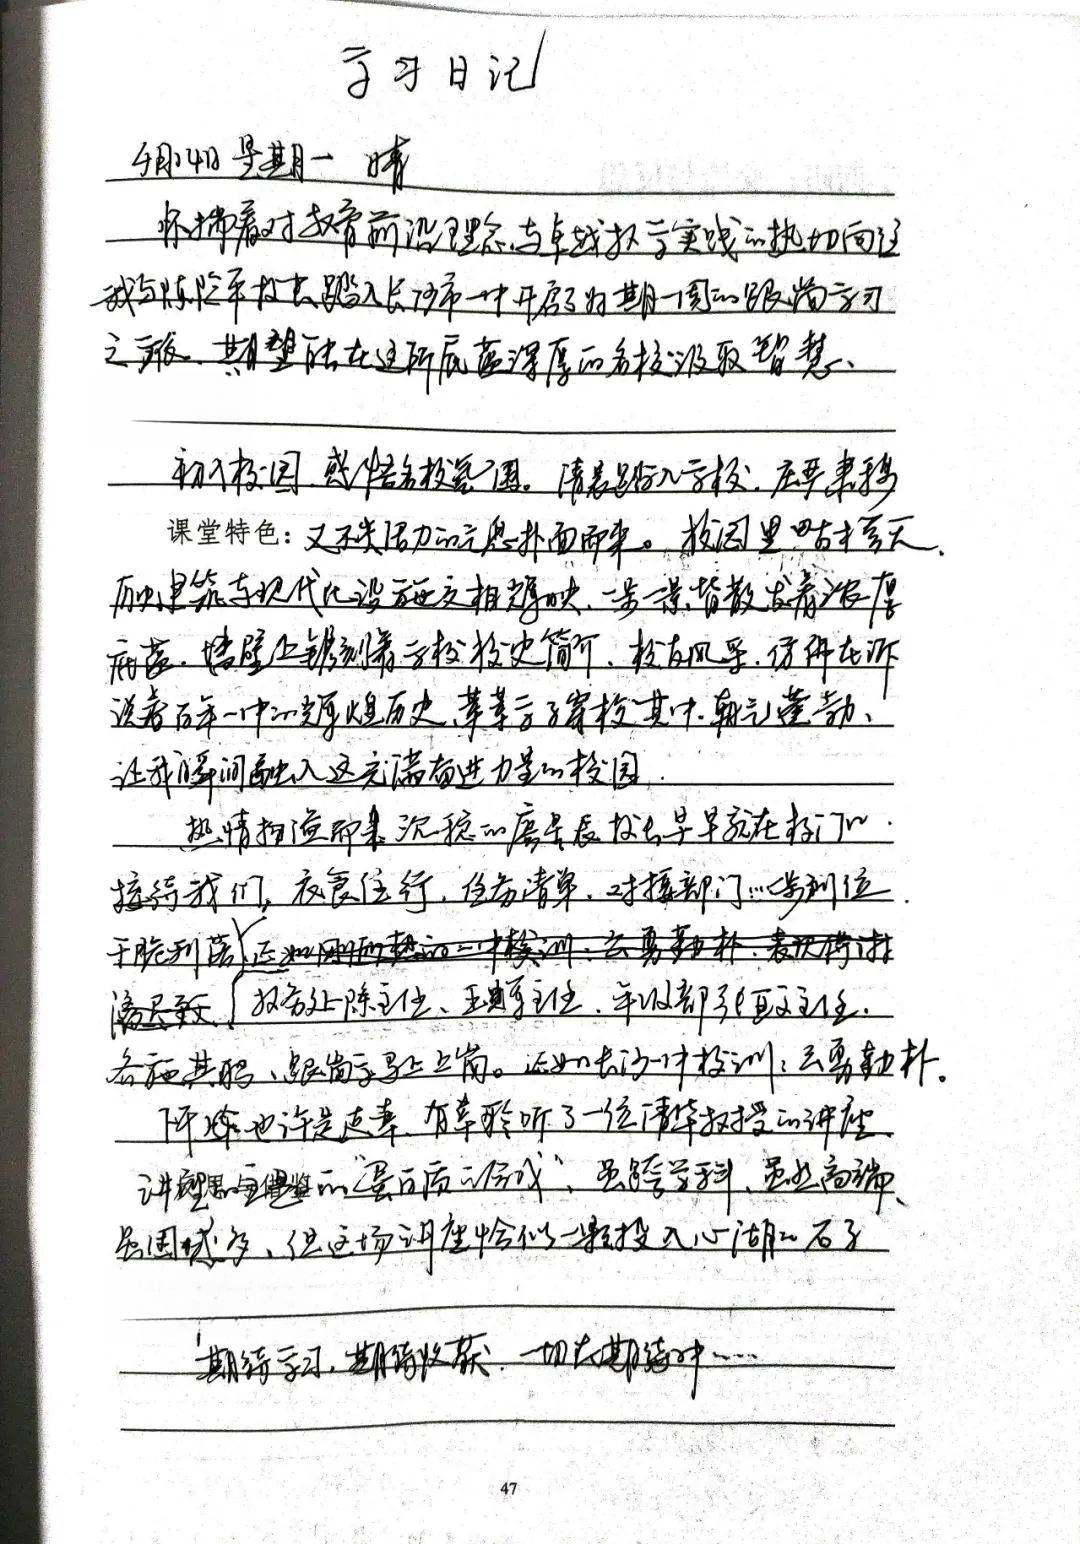 学习日记
4月14日 星期一 晴
怀揣着对教育前沿理念、与卓越教学实践的热切向往
我与陈 军校长踏入长沙市一中开启了为期一周的跟岗学习
之旅、期望能在这所底蕴深厚的名校汲取智慧、
初入校园、感悟名校氛围。清晨踏入学校、庄严肃穆
课堂特色：又不失活力的气息扑面而来。校园里古木参天、
历史建筑与现代化设施交相辉映、一步一景、皆散发着浓厚
底蕴、墙壁上镌刻着学校校史简介、校友风采、仿佛在诉
说着百年一中的辉煌历史、莘莘学子穿梭其中、朝气蓬勃、
让我瞬间融入这充满奋进力量的校园、
热情扑面而来 沉稳的 校长早早就在校门口
接待我们，衣食住行、任务清单、对接部门…一一到位、
干脆利落 正如 一中校训：公勇勤朴、
教务处陈主任、王 主任、年级部 主任、
各施其职、跟岗学习马上上岗。正如长沙一中校训：公勇勤朴。
下午 也许是运气、有幸聆听了一位清华教授的讲座、
讲 的“蛋白质的合成”、虽跨学科、虽然高端、
虽困惑多、但这场讲座恰似一颗投入心湖的石子
期待学习、期待收获、一切在期待中……
47